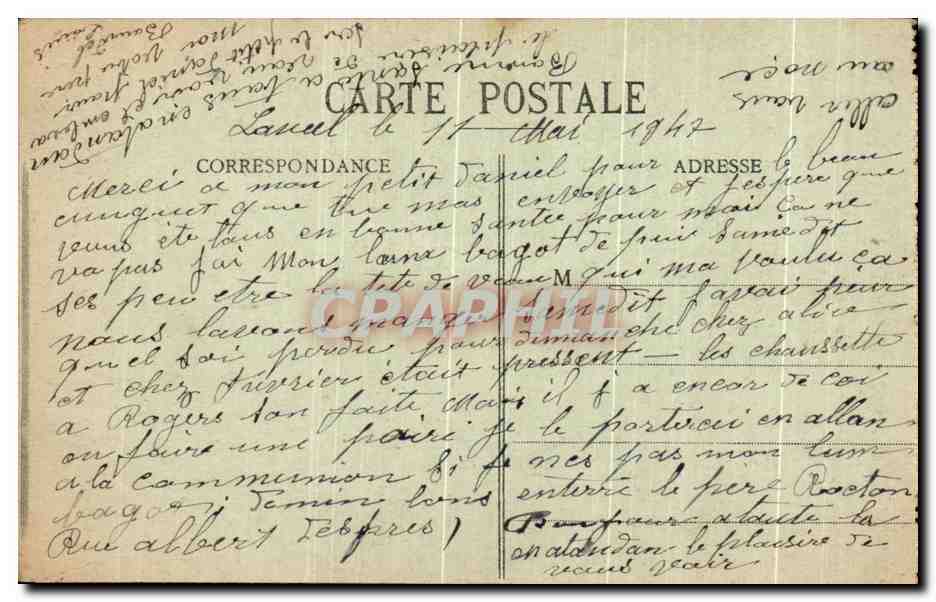 CARTE POSTALE
Lancel le 11 Mai 1947
CORRESPONDANCE
ADRESSE
M
Merci a mon petit Daniel pour le beau
que tue mas envoyer et jespere que
vous ête tous en bonne santée pour moi ça ne
va pas jai mon bagot de puis Samedit
ses peu etre la tete de veau qui ma voulu ça
nous lavons mangé Samedit javai peur
quel soi perdu pour dimanche chez alice
et chez Fuvrier était pressent - les chaussette
a Rogers son faite Mais il j a encor de coi
en faire une pairi je le porterai en allan
a la communion si je nes pas mon lum
bagot, demin lons enterre le pere Rocton
Rue albert Despres,
Bonjour a toute la
en atandan le plaisire de
vous voir
Bonne Santé a tous en atandan
le plaisire de
le petit Daniel pour
mon
votre
aller vous
au noce
CPAPHIL